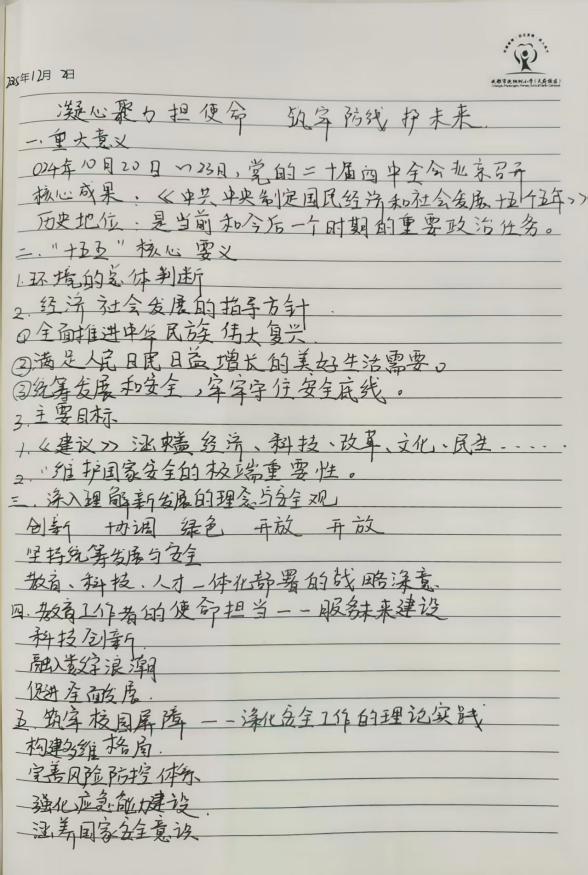 2025年12月2日
凝心聚力担使命 筑牢防线护未来.
一.重大意义
024年10月20日~23日,党的二十届四中全会北京召开
核心成果:《中共中央制定国民经济和社会发展十五个五年》
历史地位:是当前和今后一个时期的重要政治任务。
二."十五五"核心要义
1.环境的总体判断
2.经济社会发展的指导方针
①全面推进中华民族伟大复兴.
②满足人民日民日益增长的美好生活需要。
③统筹发展和安全,牢牢守住安全底线。
3.主要目标
1.《建议》涵盖经济、科技、改革、文化、民生......
2."维护国家安全的极端重要性。
三.深入理解新发展的理念与安全观
创新 协调 绿色 开放 开放
坚持统筹发展与安全
教育、科技.人才一体化部署的战略深意.
四.教育工作者的使命担当——服务未来建设
科技创新.
融入数字浪潮
促进全面发展.
五.筑牢校园屏障——深化安全工作的理论实践
构建多维格局.
完善风险防控体系
强化应急能力建设.
涵养国家安全意识